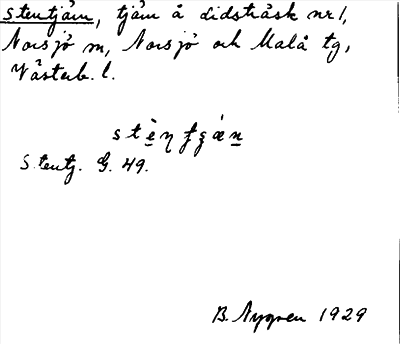 Stentjärn, tjärn å Lidsträsk nr 1,
Norsjö sn, Norsjö och Malå tg,
Västerb. l.
Stentj. G. 49.
B. Nygren 1929